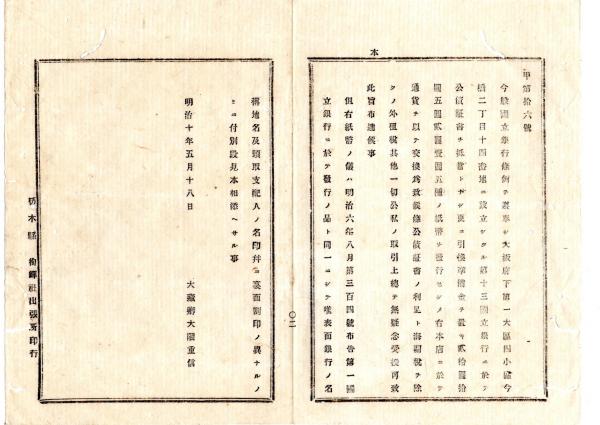 本
甲第拾六號
今般國立銀行條例ヲ遵奉シ大坂府下第一大區四小區今
橋二丁目十四番地ニ設立シタル第十三國立銀行ニ於テ
公債証書ヲ抵當トナシ更ニ引換準備金ヲ載キ貳拾圓拾
圓五圓貳圓壹圓五種ノ紙幣ヲ發行セシメ右本店ニ於テ
通貨ヲ以テ交換爲致候條公債証書ノ利足ト海關稅ヲ除
クノ外租稅其他一切公私ノ取引上總テ無疑念受授可致
此旨布達候事
但右紙幣ノ儀ハ明治六年八月第三百四號布告第一國
立銀行ニ於テ發行ノ品ト同一ニシテ唯表面銀行ノ名
〇二
稱地名及頭取支配人ノ名印幷ニ裏面割印ノ異ナルノ
ミニ付別段見本相添ヘサル事
明治十年五月十八日
大藏卿大隈重信
栃木縣 出張所印行